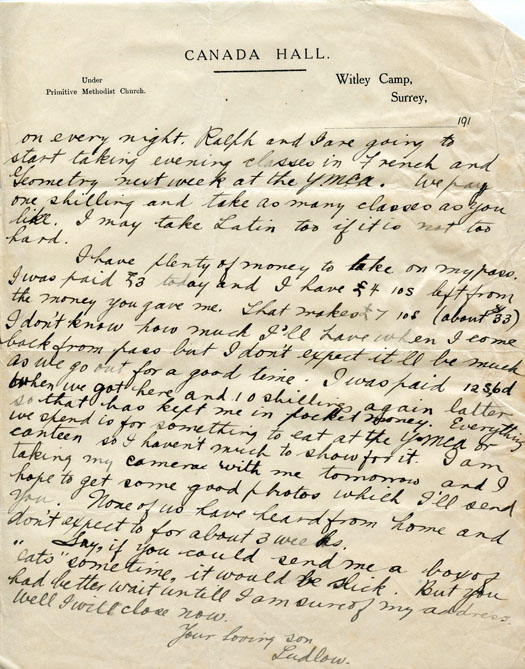 CANADA HALL.
Under
Primitive Methodist Church.
Witley Camp,
Surrey,
191
on every night. Ralph and I are going to
start taking evening classes in French and
Geometry next week at the YMCA. We pay
one shilling and take as many classes as you
like. I may take Latin too if it is not too
hard.
I have plenty of money to take on my pass.
I was paid £3 today and I have £4 10s left from
the money you gave me. That makes £7 10s (about $33)
I don't know how much I'll have when I come
back from pass but I don't expect it'll be much
as we go out for a good time. I was paid 12s6d
when we got here and 10 shillings again latter
so that has kept me in pocket money. Everything
we spend is for something to eat at the YMCA or
canteen so I haven't much to show for it. I am
taking my camera with me tomorrow and I
hope to get some good photos which I'll send
you. None of us have heard from home and
don't expect to for about 3 weeks.
"Say, if you could send me a box of
"eats" sometime, it would be slick. But you
had better wait untill I am sure of my address.
Well I will close now.
Your loving son
Ludlow.